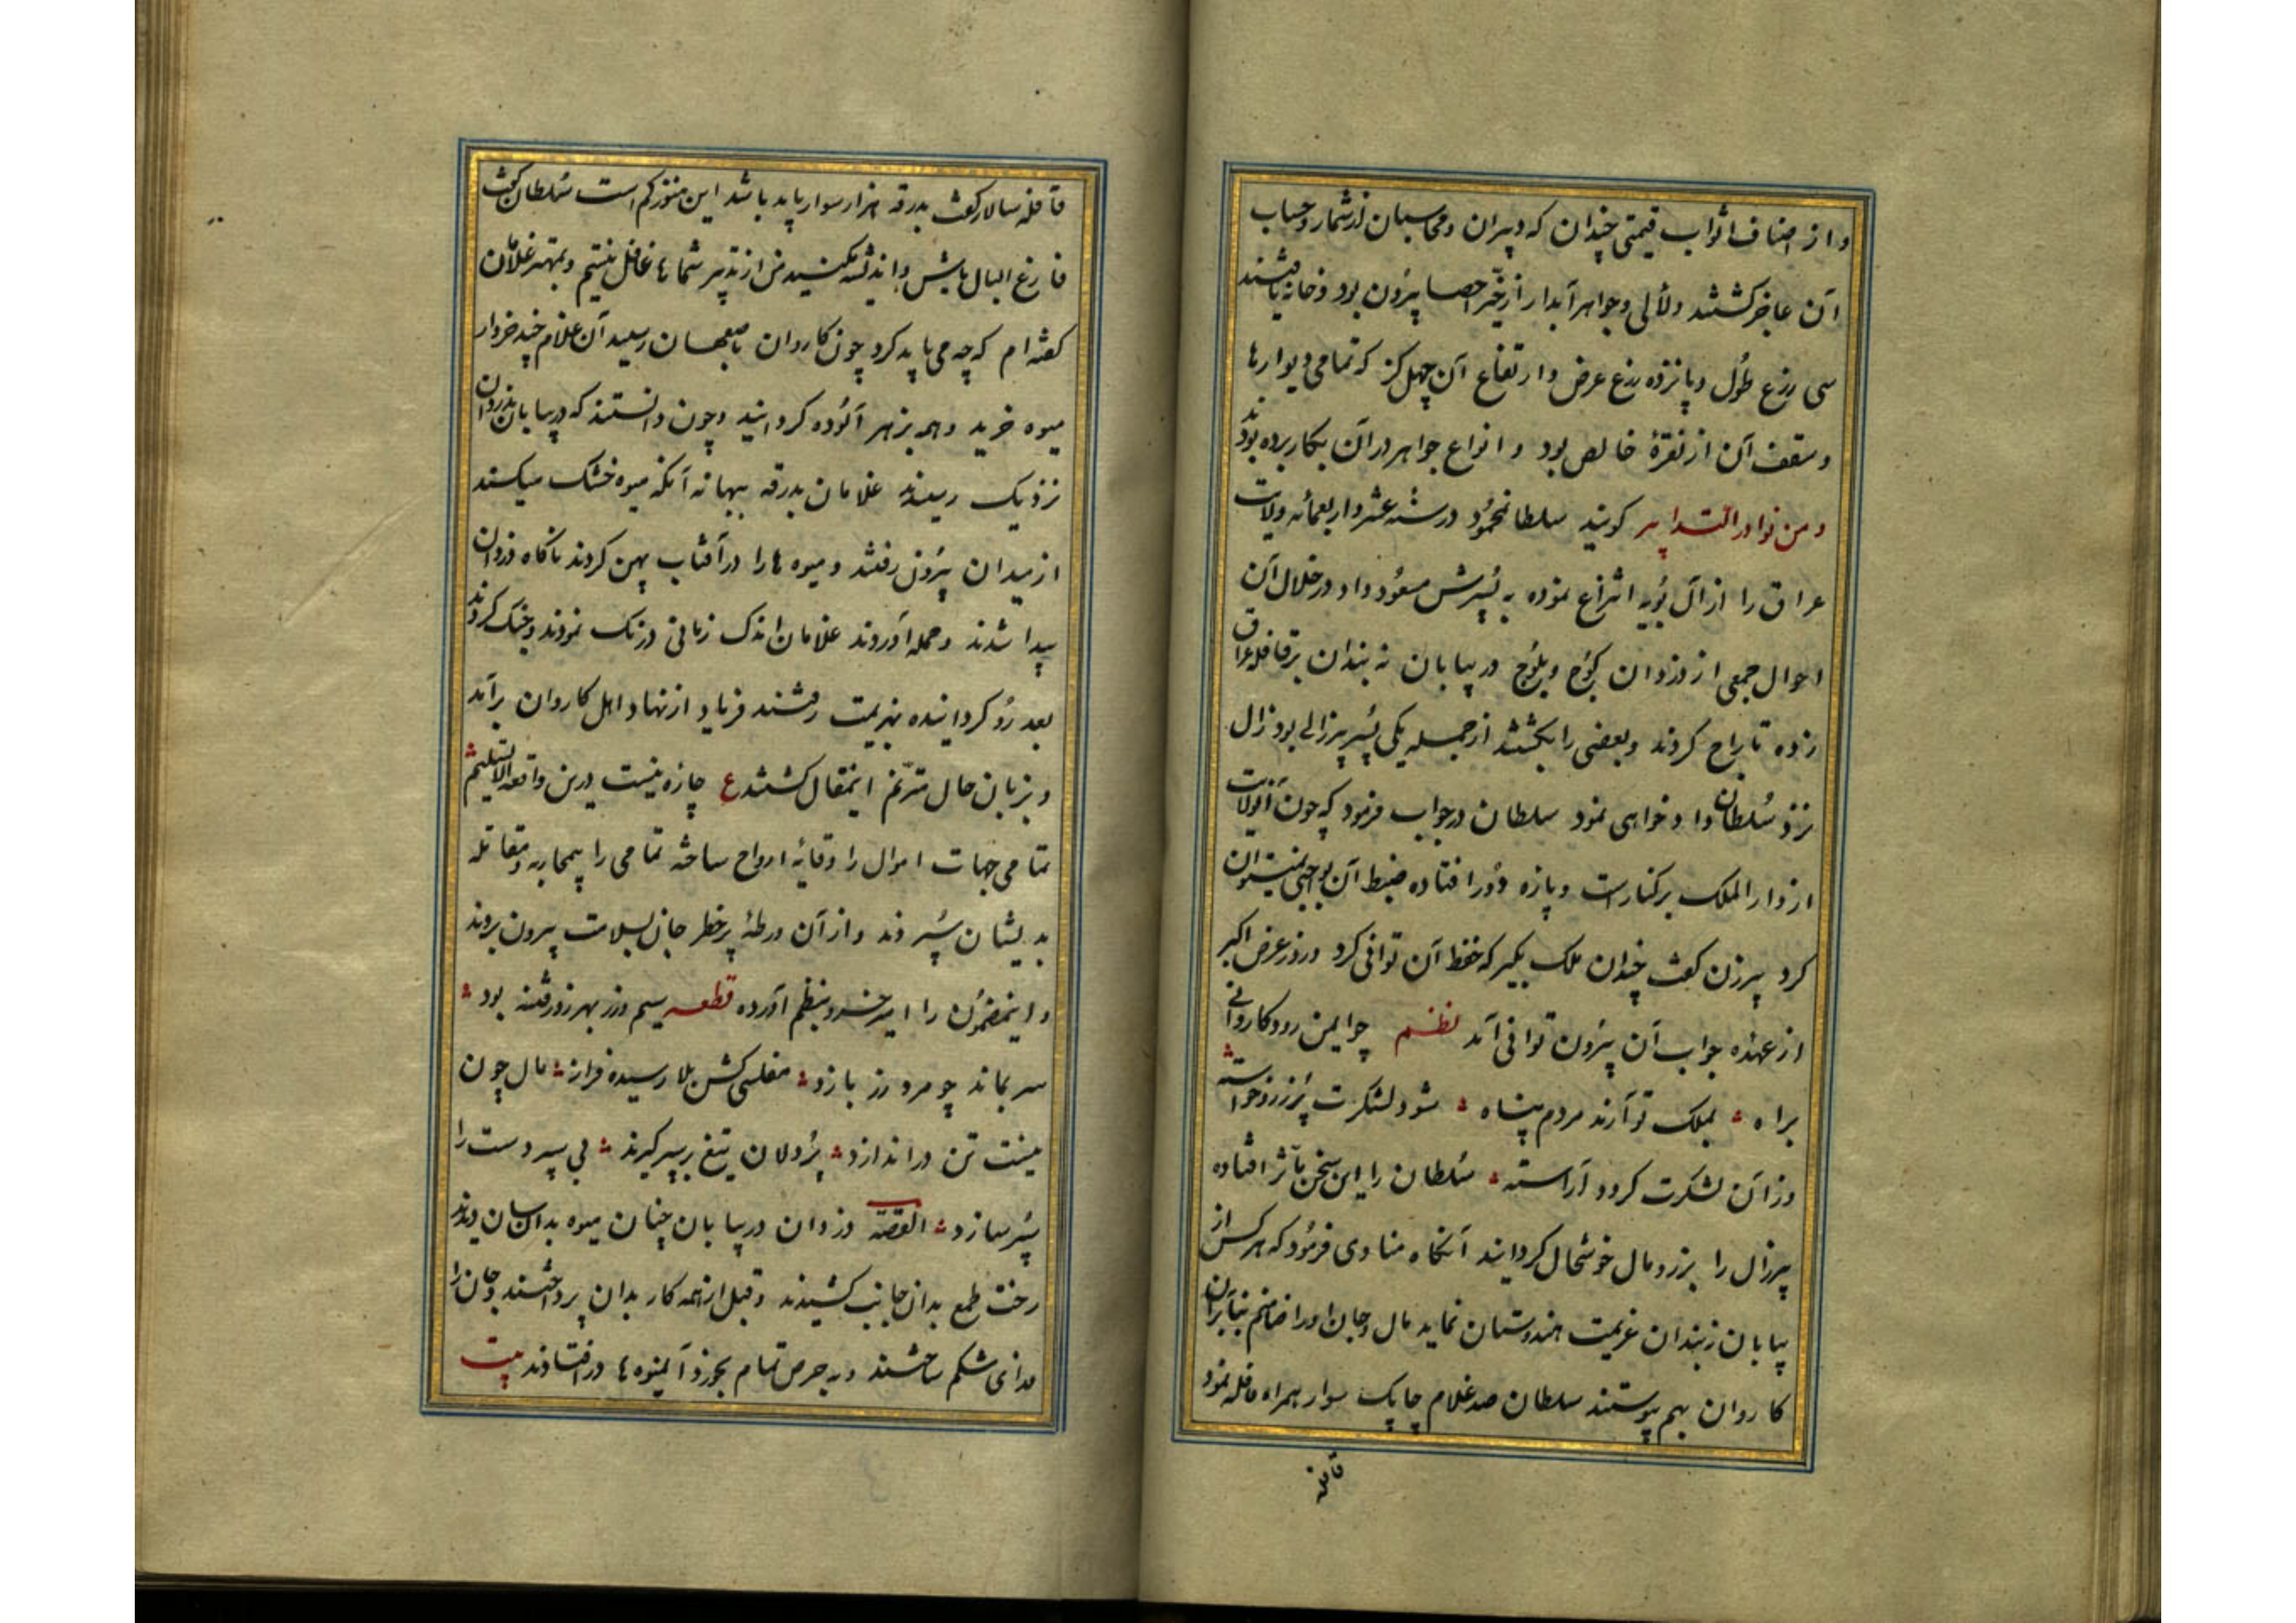 و از اصناف اثواب قیمتی چندان که دبیران و محاسبان از شمار و حساب
آن عاجز گشتند و لآلی و جواهر آبدار از حیز احصا بیرون بود و خانه یافتند
سی زرع طول و پانزده زرع عرض و ارتفاع آن چهل گز که تمامی دیوارها
و سقف آن از نقرهٔ خالص بود و انواع جواهر در آن بکار برده بودند
و من نوادر التدابیر گویند سلطان محمود در سنه عشر و اربعمائه ولایت
عراق را از آل بویه انتزاع نموده به پسرش مسعود داد در خلال آن
احوال جمعی از دزدان کوچ و بلوچ در بیابان نه بندان بر قافله عراق
زده تاراج کردند و بعضی را بکشتند از جمله یکی پسر پیرزالی بود زال
نزد سلطان داد خواهی نمود سلطان در جواب فرمود که چون آن ولایت
از دار الملک بر کنارست و پاره دور افتاده ضبط آن بواجبی نمیتوان
کرد پیرزن گفت چندان ملک بگیر که حفظ آن توانی کرد و روز عرض اکبر
از عهده جواب آن بیرون توانی آمد نظم چو ایمن رود کاروانی
براه بملک تو آرند مردم پناه شود لشکرت پر زر و خواسته
وز آن لشکرت گردد آراسته سلطان را این سخن مأثر افتاده
پیرزال را بزر و مال خوشحال گردانند آنگاه منادی فرمود که هر کس از
بیابان نه بندان عزیمت هندوستان نماید مال و جان او را ضامنم بنابران
کاروان بهم پیوستند سلطان صد غلام چابک سوار همراه قافله نمود
قافله
قافله سالار گفت بدرقه هزار سوار باید باشد این هنوز کم است سلطان گفت
فارغ البال باش و اندیشه مکنید من از تدبیر شماها غافل نیستم و بمهتر غلامان
گفته ام که چه می باید کرد چون کاروان باصفهان رسید آن غلام چند خروار
میوه خرید و همه بزهر آلوده گردانید و چون دانستند که در بیابان بدزدان
نزدیک رسیدند غلامان بدرقه ببهانه آنکه میوه خشک میکنند
از میدان بیرون رفتند و میوه ها را در آفتاب پهن کردند ناگاه دزدان
پیدا شدند و حمله آوردند غلامان اندک زمانی درنگ نمودند و جنگ کردند
بعد رو گردانیده بهزیمت رفتند فریاد از نهاد اهل کاروان برآمد
و بزبان حال مترنم اینمقال گشتند ع چاره نیست درین واقعه الا تسلیم
تمامی جهات اموال را وقایهٔ ارواح ساخته تمامی را بیمحاربه و مقاتله
بدیشان سپردند و از آن ورطهٔ پر خطر جان بسلامت بیرون بردند
و اینمضمون را امیر خسرو بنظم آورده قطعه سیم و زر بهر زور فتنه بود
سر بماند چو مرد زر بازد مفلسی کش بلا رسیده فراز مال چون
نیست تن در اندازد پردلان تیغ بر سپر گیرند بی سپر دست را
سپر سازد القصه دزدان در بیابان چنان میوه بدان سان دیدند
رخت طمع بدان جانب کشیدند و قبل از همه کار بدان پرداختند و جان را
فدای شکم ساختند و به حرص تمام بخوردن آن میوه ها در افتادند بیت